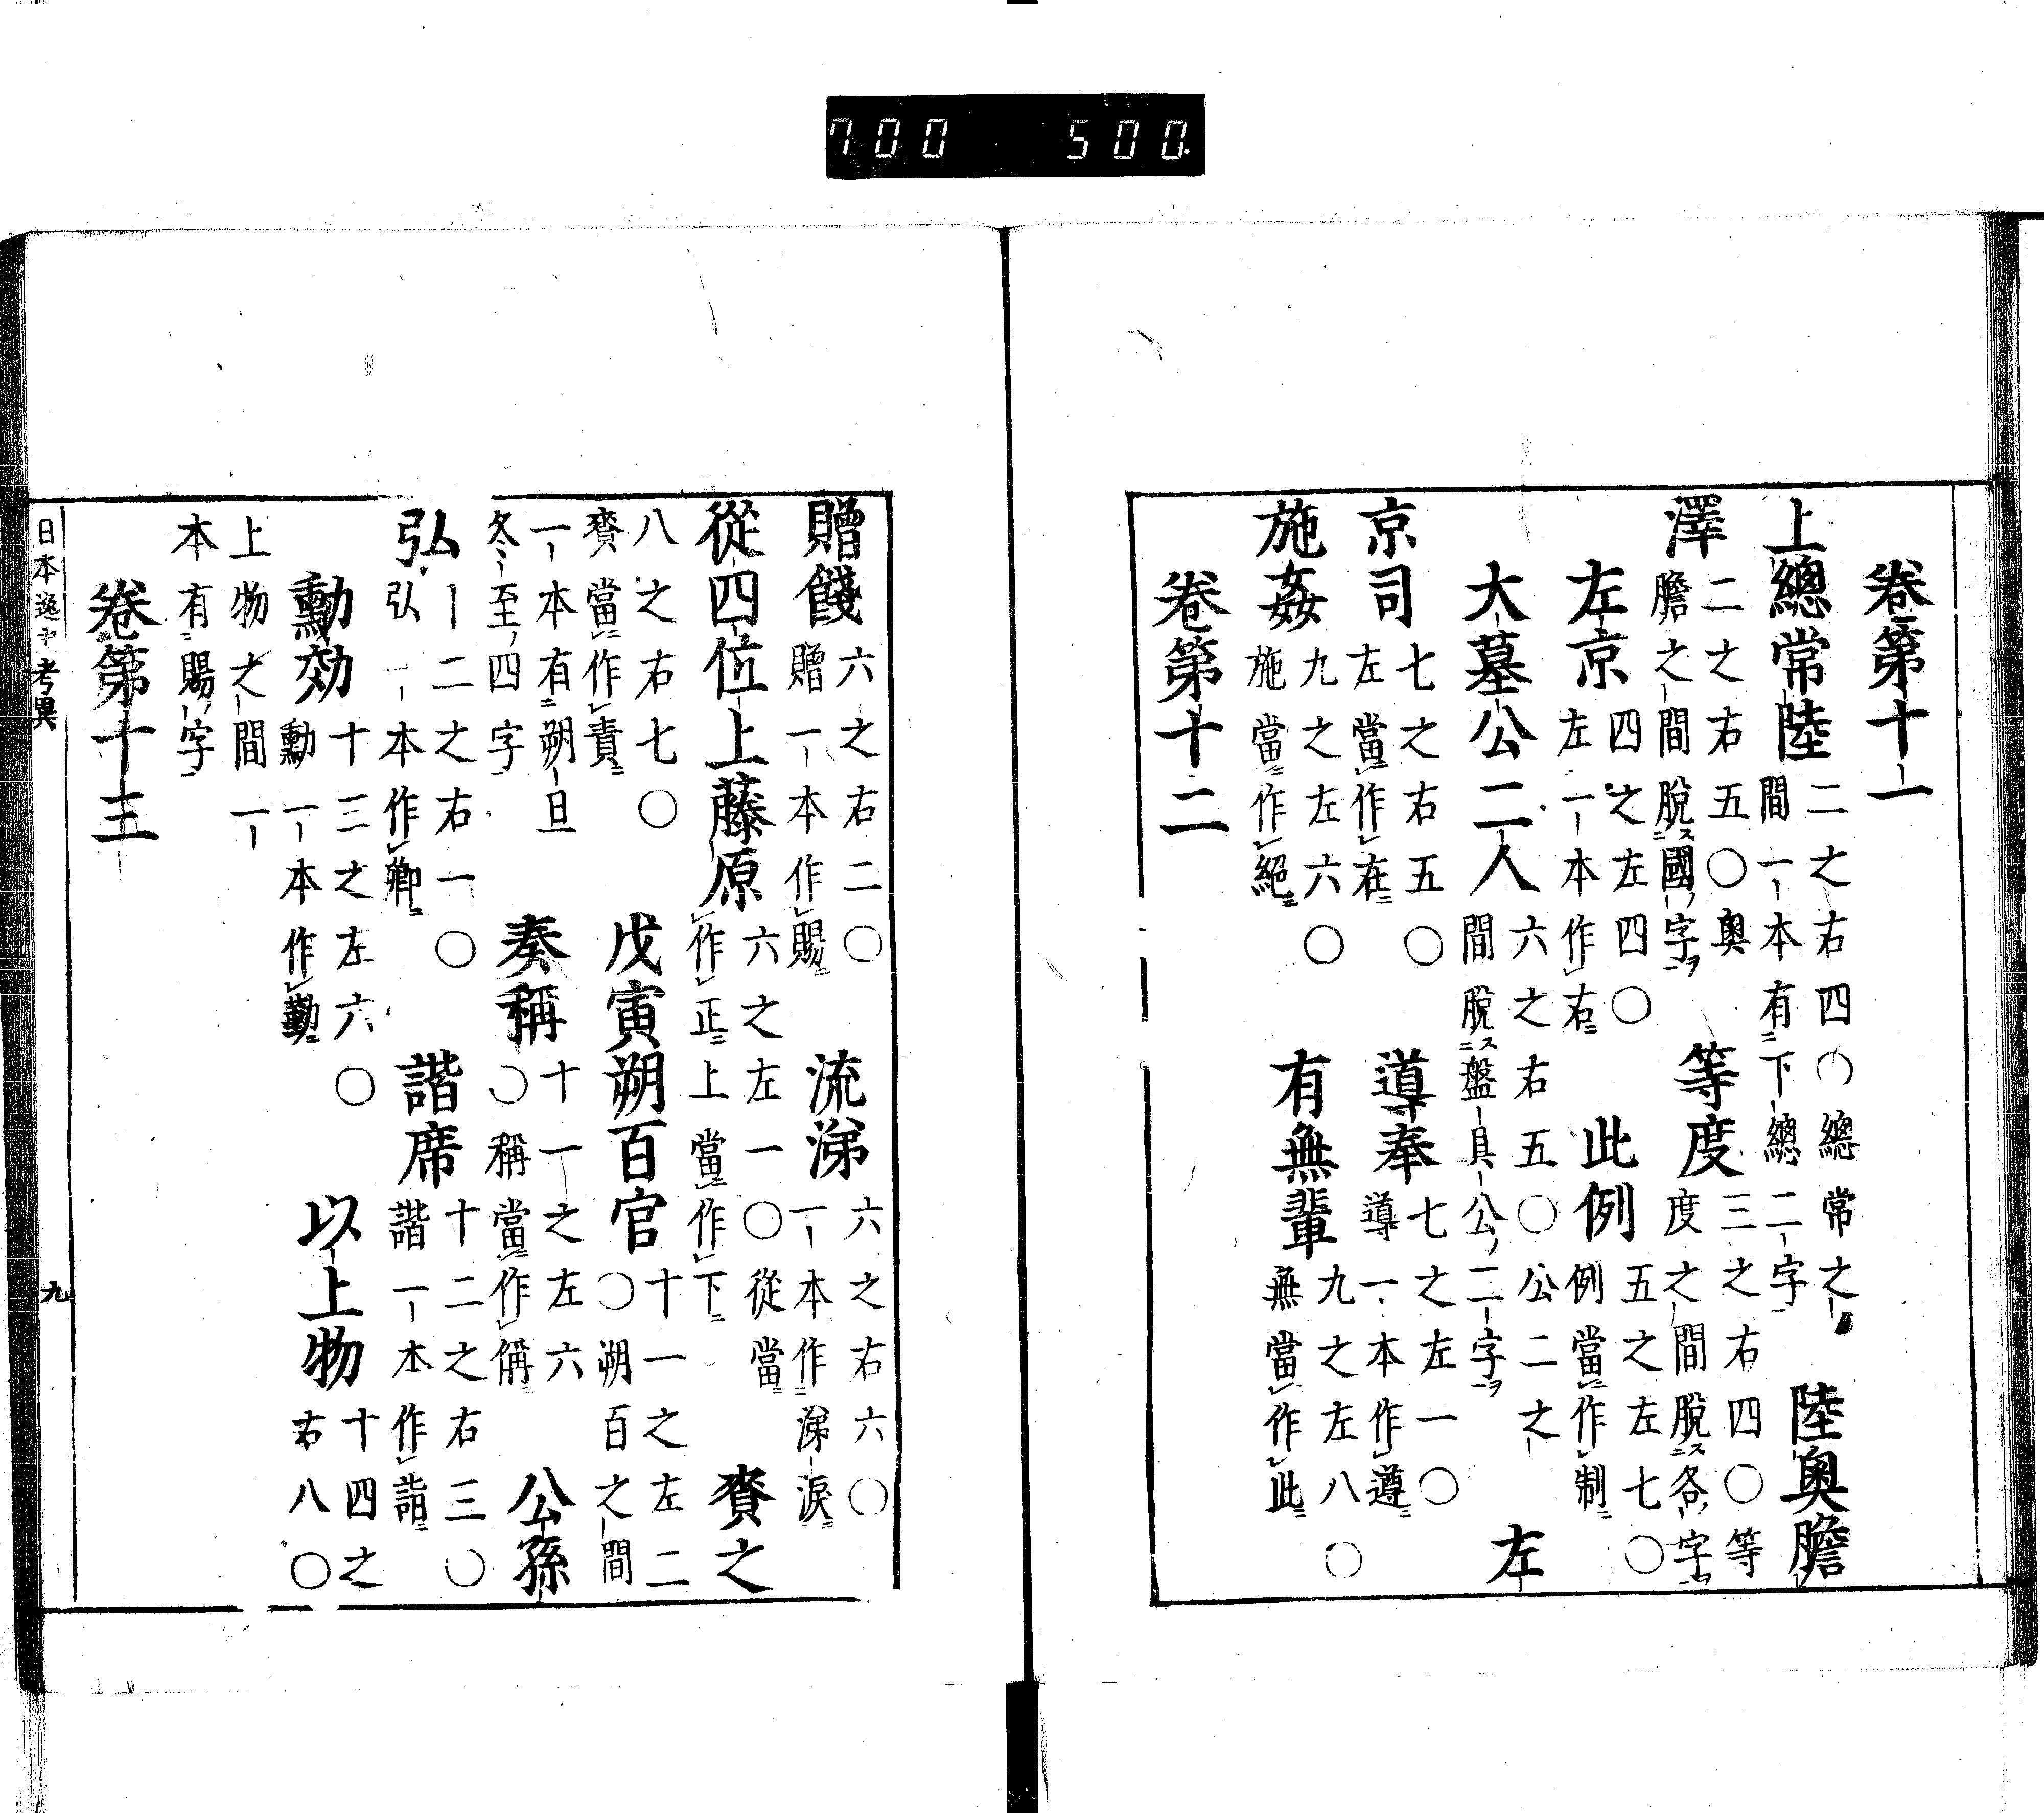 700 500.
卷第十一
上總常陸 二之右四〇總常之間一本有下總二字 陸奥膽
澤 二之右五〇奥膽之間脫國字ヲ 等度 三之右四〇等度之間脫ス各字ヲ
左京 四之左四〇左一本作右 此例 五之左七〇例當作制
大墓公二人 六之右五〇公二之間脫ス盤具公二字ヲ 左
京司 七之右五〇左當作在 導奉 七之左一〇導一本作遵
施姦 九之左六〇施當作絕 有無輩 九之左八〇無當作此
卷第十二
贈餞 六之右二〇贈一本作賜 流涕 六之右六〇一本作涕淚
從四位上藤原 六之左一〇從當作正上當作下 賚之
八之右七〇賚當作責 戊寅朔百官 十一之左二〇朔百之間
一本有朔旦冬至四字 奏稱 十一之左六〇稱當作偁 公孫
弘 十二之右一〇弘一本作卿 諧席 十二之右三〇諧一本作詣
勳効 十三之左六〇勳一本作勤 以上物 十四之右八〇
上物之間一本有賜字
卷第十三
日本逸史考異 九